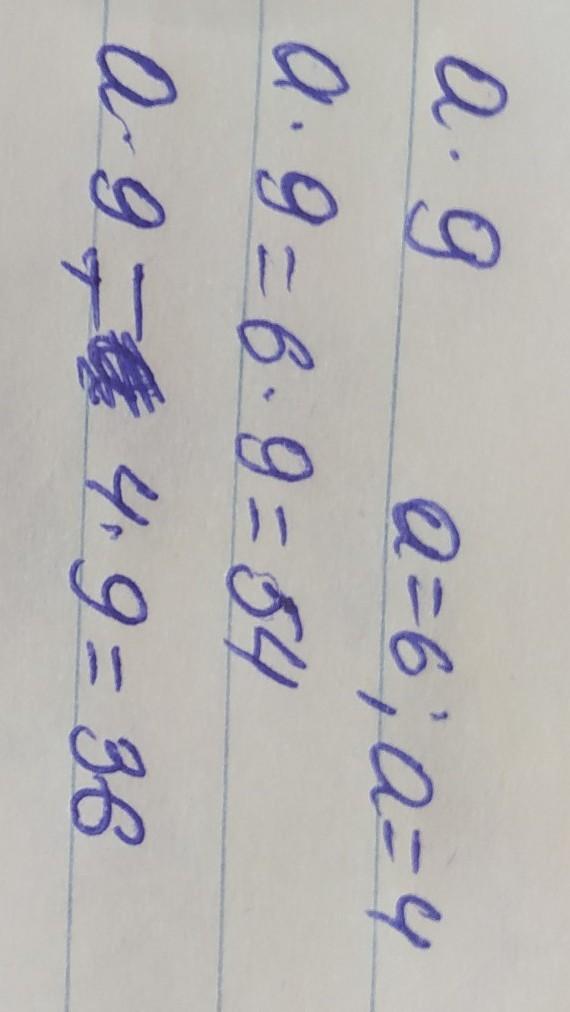 a · 9 a = 6; a = 4
a · 9 = 6 · 9 = 54
a · 9 = 4 · 9 = 36